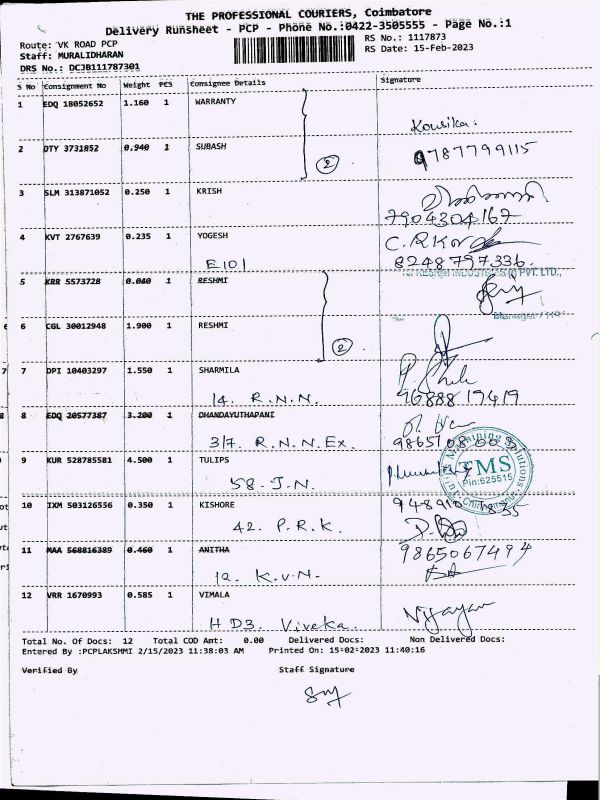 THE PROFESSIONAL COURIERS, Coimbatore
Delivery Runsheet - PCP - Phone No.:0422-3505555 - Page No.:1
Route: VK ROAD PCP
RS No.: 1117873
Staff: MURALIDHARAN
RS Date: 15-Feb-2023
DRS No.: DCJB111787301
S No Consignment No Weight PCS Consignee Details Signature
1 EDQ 18052652 1.160 1 WARRANTY
Kousika.
2 DTY 3731852 0.940 1 SUBASH 9787799115
2
3 SLM 313871052 0.250 1 KRISH
7904304167
4 KVT 2767639 0.235 1 YOGESH
E101 8248797336.
5 KRR 5573728 0.040 1 RESHMI
6 CGL 30012948 1.900 1 RESHMI
2
7 DPI 10403297 1.550 1 SHARMILA
14. R.N.N. 9688819419
8 EDQ 20577387 3.200 1 DHANDAYUTHAPANI
317. R.N.N.Ex.
9 KUR 528785581 4.500 1 TULIPS
TMS
Pin:625515
58. J.N.
10 IXM 503126556 0.350 1 KISHORE
42. P.R.K.
11 MAA 568816389 0.460 1 ANITHA 9865067494
12. K.V.N.
12 VRR 1670993 0.585 1 VIMALA
HD3. Viveka.
Total No. Of Docs: 12 Total COD Amt: 0.00 Delivered Docs: Non Delivered Docs:
Entered By :PCPLAKSHMI 2/15/2023 11:38:03 AM Printed On: 15-02-2023 11:40:16
Verified By Staff Signature